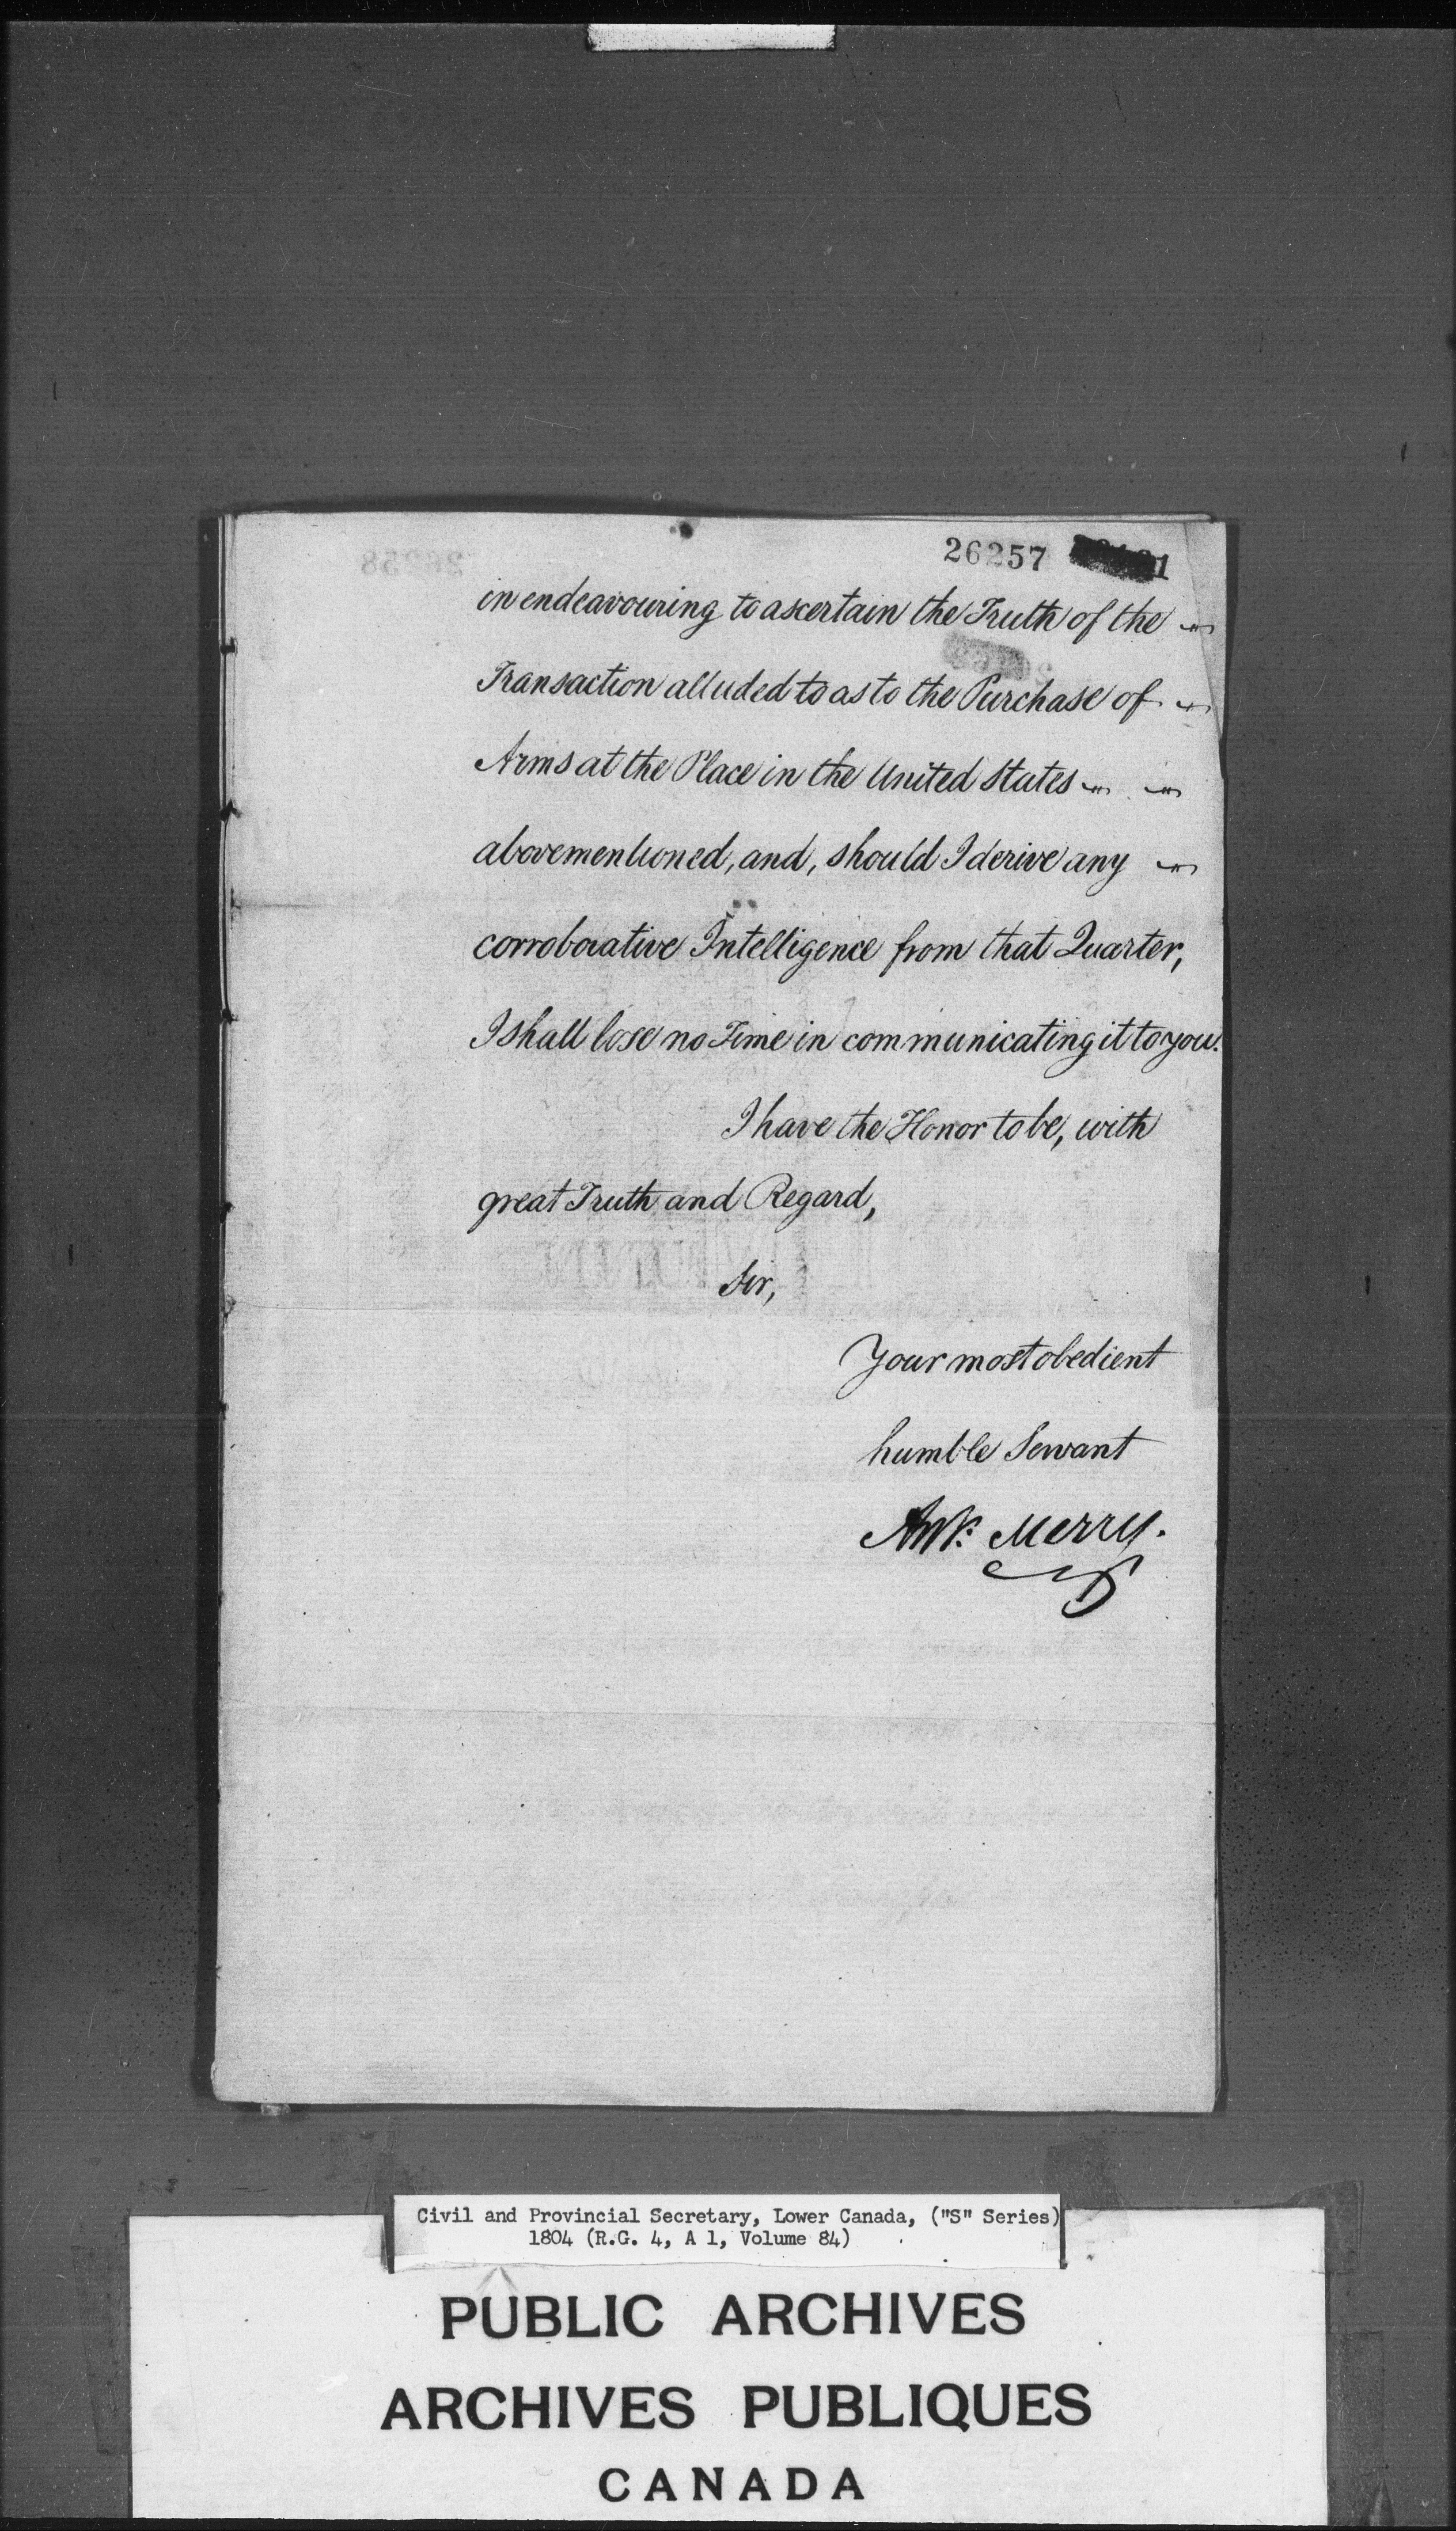 26257
in endeavouring to ascertain the Truth of the
Transaction alluded to as to the Purchase of
Arms at the Place in the United States
abovementioned, and, should I derive any
corroborative Intelligence from that Quarter,
I shall lose no Time in communicating it to you.
I have the Honor to be, with
great Truth and Regard,
Sir,
Your most obedient
humble Servant
Ant: Merry.
Civil and Provincial Secretary, Lower Canada, ("S" Series)
1804 (R.G. 4, A 1, Volume 84)
PUBLIC ARCHIVES
ARCHIVES PUBLIQUES
CANADA